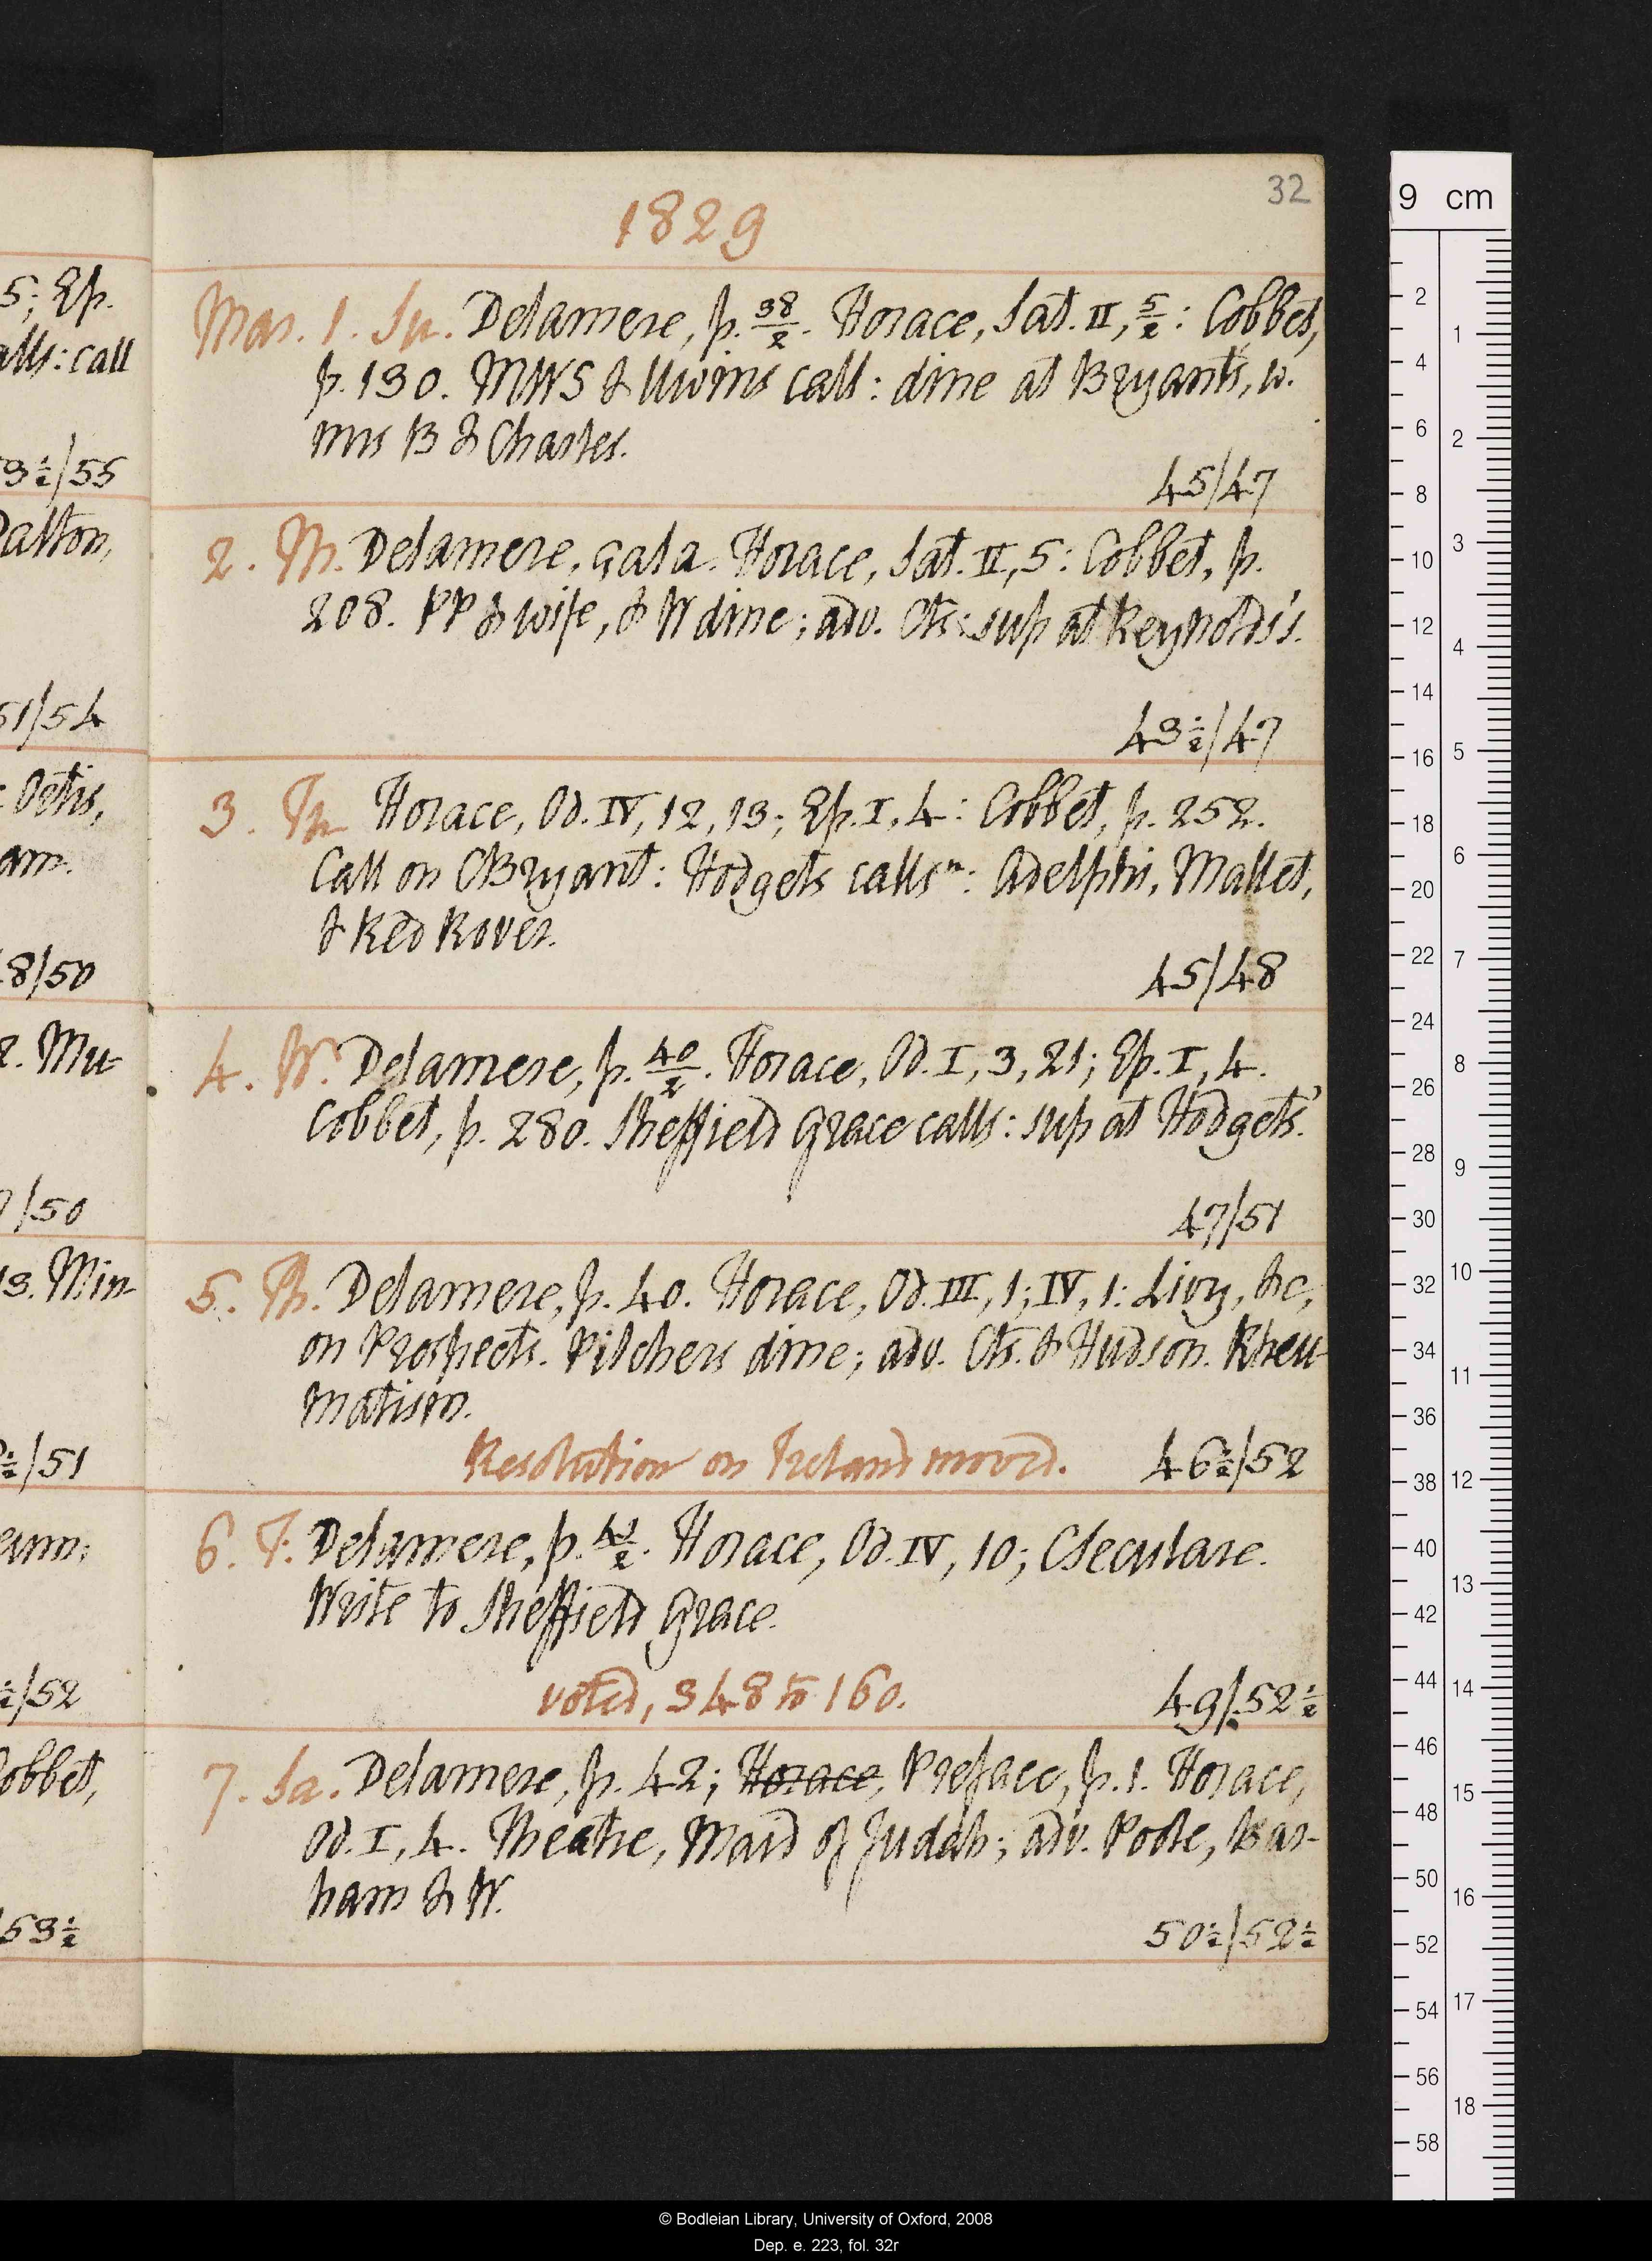 32
1829
5; Ep.
alls: call
3½/55
Dalton,
51/54
: Oetis,
am.
48/50
2. Mu-
/50
13. Min-
½/51
½/52
Cobbet,
53½
Mar. 1. Su. Delamere, p. 38/2. Horace, Sat. II, 5/2: Cobbet,
p. 130. MWS & Uwins call: dine at Bryant's, w.
mrs B & Charles.
45/47
2. M. Delamere, çala. Horace, Sat. II, 5: Cobbet, p.
208. PP & wife, & W dine; adv. Cts: sup at Reynolds's.
43½/47
3. Tu Horace, Od. IV, 12, 13; Ep. I, 4: Cobbet, p. 252.
Call on CBryant: Hodgets calls n: Adelphi, Mallet,
& Red Rover.
45/48
4. W. Delamere, p. 40/2. Horace, Od. I, 3, 21; Ep. I, 4.
Cobbet, p. 280. Sheffield Grace calls: sup at Hodgets'.
47/51
5. Th. Delamere, p. 40. Horace, Od. III, 1; IV, 1: Livy, &c,
on Prospects. Pilchers dine; adv. Cts. & Hudson. Rheu-
matism.
Resolution on Ireland moved. 46½/52
6. F. Delamere, p. 42/2. Horace, Od. IV, 10; CSeculare.
Write to Sheffield Grace.
voted, 348 to 160. 49/52½
7. Sa. Delamere, p. 42; Horace, Preface, p. 1. Horace,
Od. I, 4. Theatre, Maid of Judah; adv. Poole, Bar-
ham & W.
50½/52½
9 cm
2
4
6
8
10
12
14
16
18
20
22
24
26
28
30
32
34
36
38
40
42
44
46
48
50
52
54
56
58
1
2
3
4
5
6
7
8
9
10
11
12
13
14
15
16
17
18
© Bodleian Library, University of Oxford, 2008
Dep. e. 223, fol. 32r